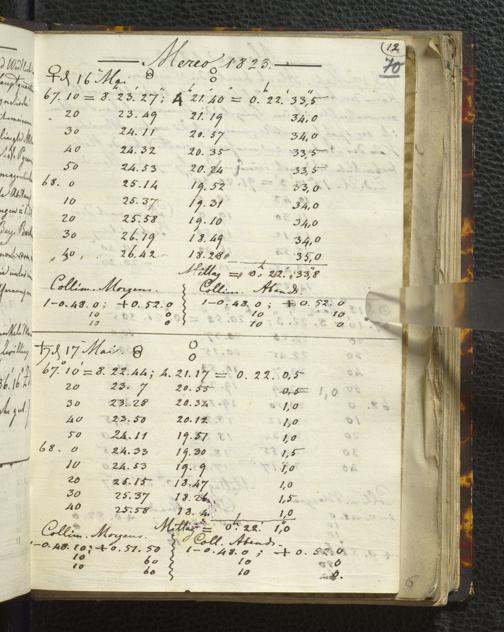 (12
70
Meroe 1823.
♀ d 16 Mai
67.10 = 8.23.27; 4 21.40 = 0.22.33,5
20 23.49 21.19 34,0
30 24.11 20.57 34,0
40 24.32 20.35 33,5
50 24.53 20.24 33,5
68. 0 25.14 19.52 33,0
10 25.37 19.31 34,0
20 25.58 19.10 34,0
30 26.19 18.49 34,0
40, 26.42 18.28 35,0
Mittag = 0.22.33,8
Collim. Morgens. Collim. Abends.
1-0.48.0; +0.52.0 1-0.48.0; +0.52.0
10 0 10 0
10 0 10 0
♄ d 17 Mai
67.10 = 8.22.44; 4.21.17 = 0.22.0,5
20 23.7 20.55 0,5
30 23.28 20.34 1,0
40 23.50 20.12 1,0
50 24.11 19.51 1,0
68. 0 24.33 19.30 1,5
10 24.53 19.9 1,0
20 25.15 18.47 1,0
30 25.37 18.26 1,5
40 25.58 18.4 1,0
Mittag = 0.22.1,0
Collim. Morgens. Coll. Abends.
-0.48.10; +0.51.50 1-0.48.0; +0.52.0
10 60 10 0
10 60 10 0.
6